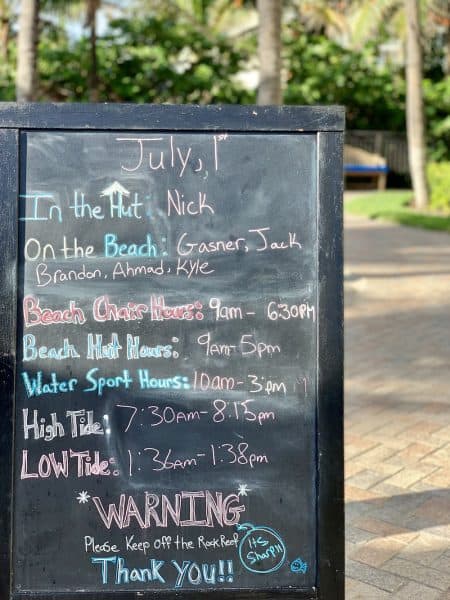 July, 1st
In the Hut: Nick
On the Beach: Gasner, Jack
Brandon, Ahmad, Kyle
Beach Chair Hours: 9am - 6:30pm
Beach Hut Hours: 9am-5pm
Water Sport Hours: 10am-3:pm
High Tide: 7:30am-8:15pm
LOW Tide: 1:36am-1:38pm
*WARNING*
Please Keep off the Rock Reef
Its
Sharp!!
Thank You!!